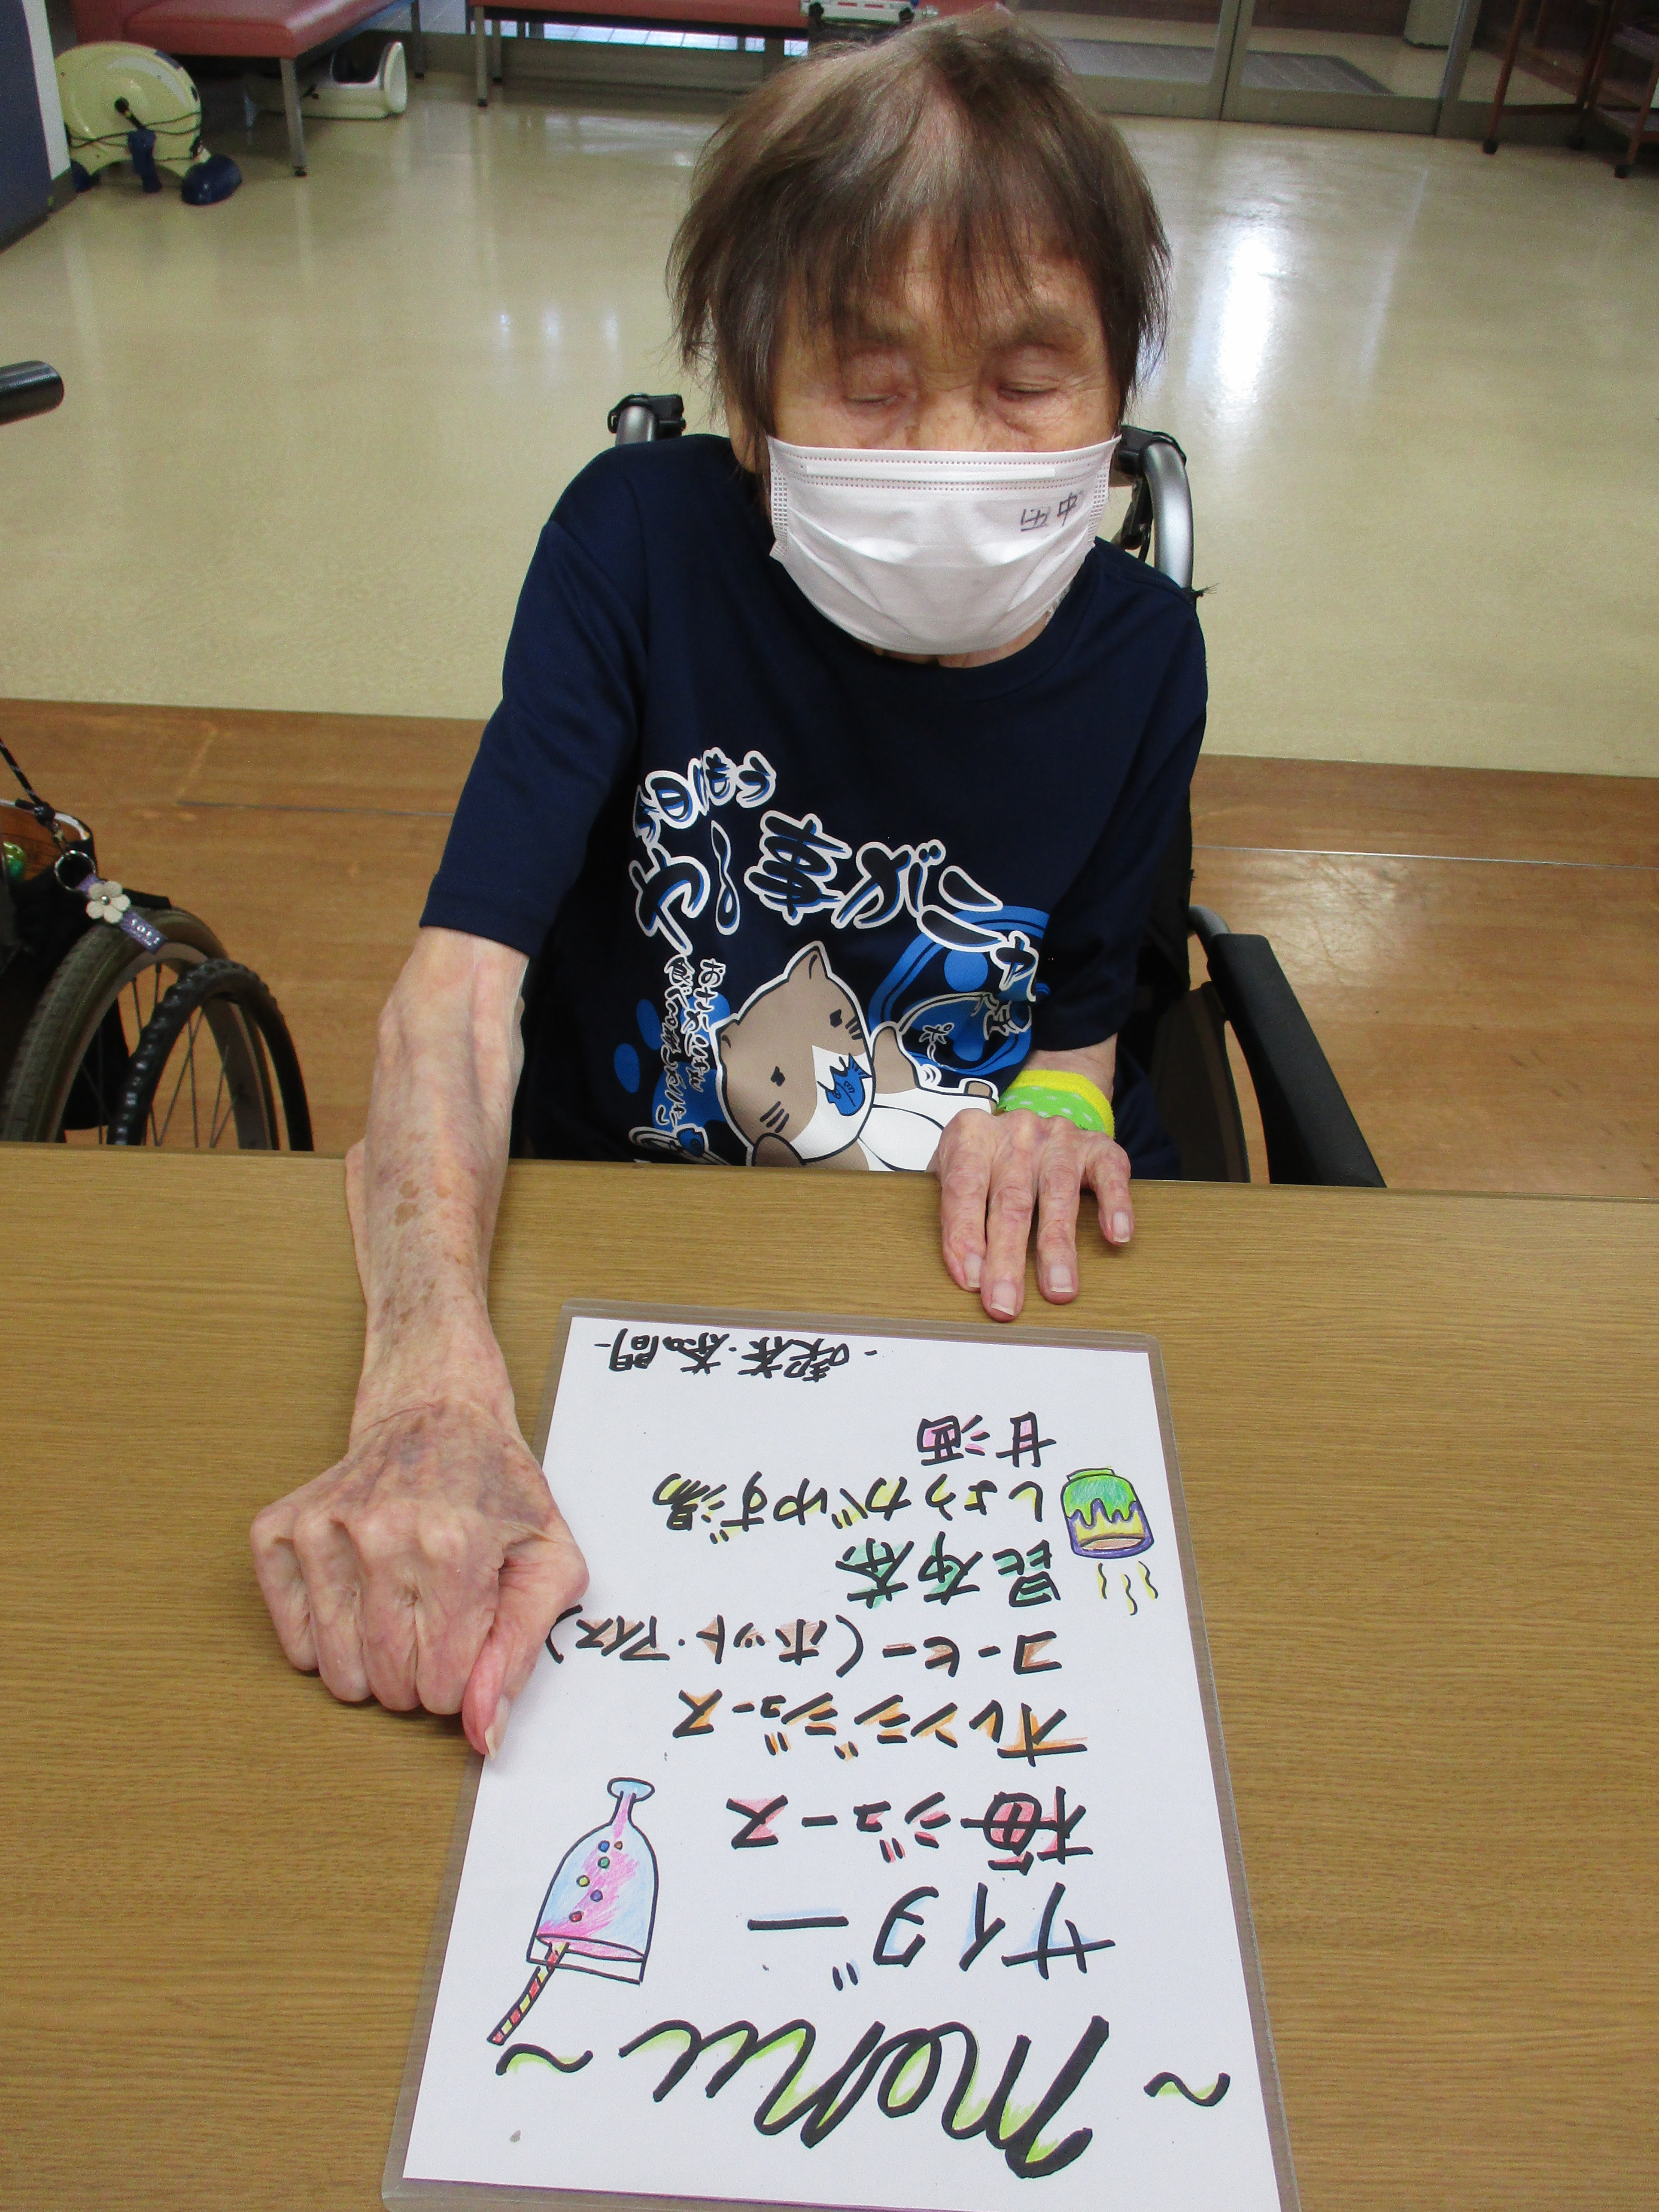 田中
今日はもう
やる事がニャい
~menu~
サイダー
梅ジュース
オレンジジュース
コーヒー(ホット・アイス)
昆布茶
しょうがゆず湯
甘酒